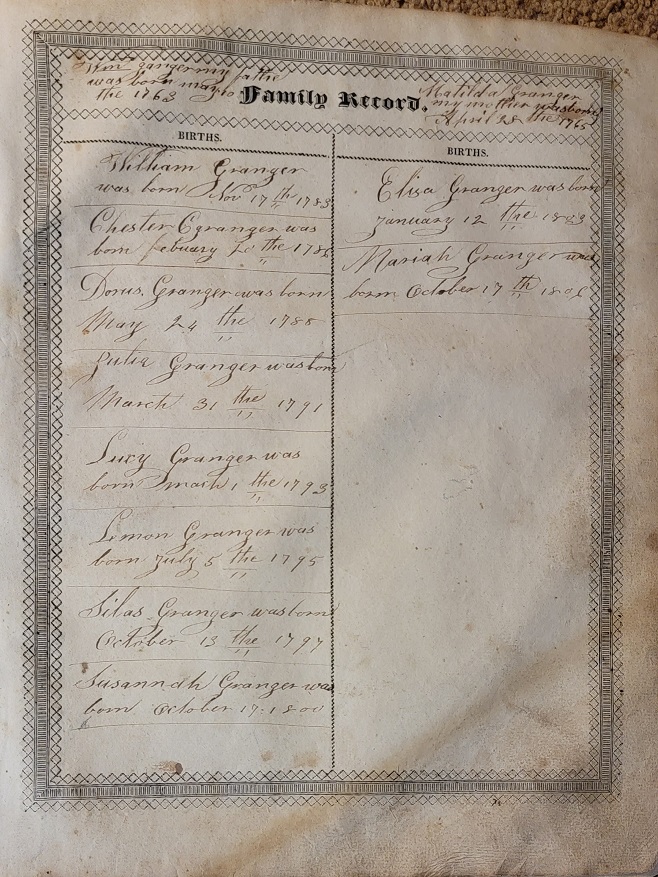 Wm Granger my fathe
was born may 10
the 1763
Family Record.
Matilda Granger
my mother was born
April 28 the 1765
BIRTHS.
William Granger
was born Nov 17 th 1783
Chester Granger was
born febuary 20 the 1786
Dorus Granger was born
May 24 the 1788
Julia Granger was born
March 31 the 1791
Lucy Granger was
born mach 1 the 1793
Lemon Granger was
born July 5 the 1795
Silas Granger was born
October 13 the 1797
Susannah Granger was
born October 17 1800
BIRTHS.
Elisa Granger was born
January 12 the 1803
Mariah Granger was
born October 17 th